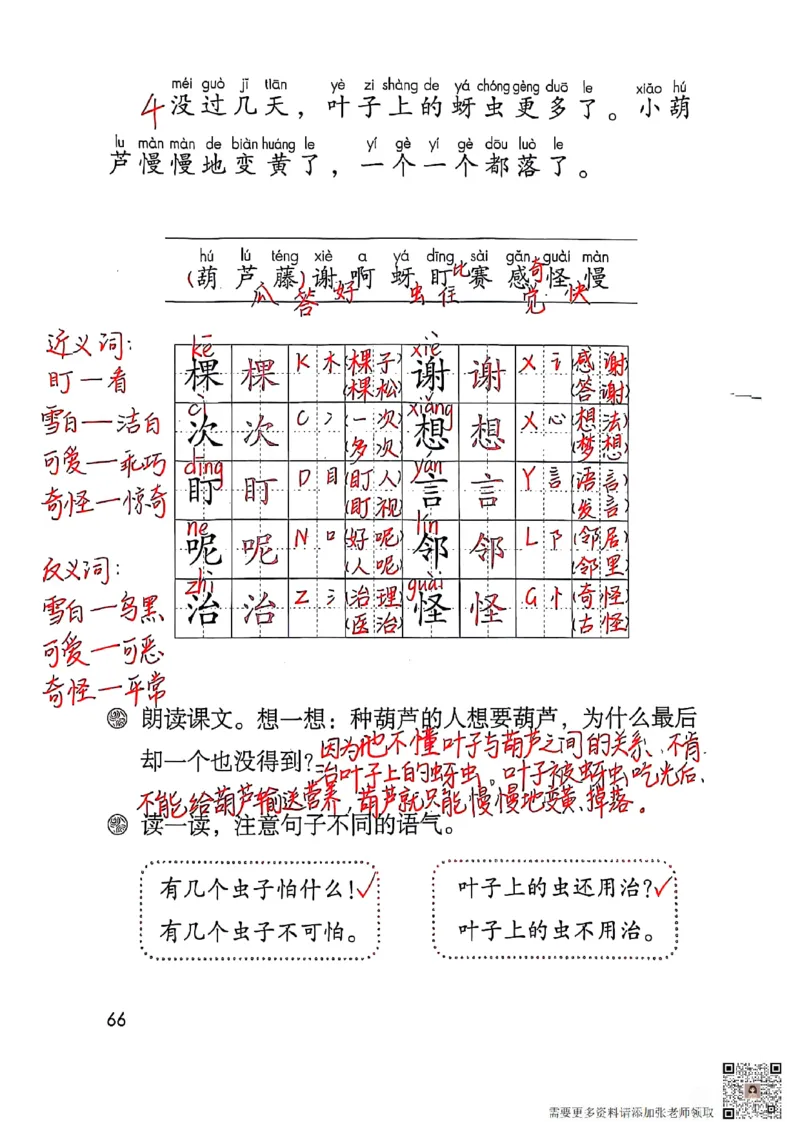 méi guò jǐ tiān yè zi shàng de yá chóng gèng duō le xiǎo hú
4 没过几天，叶子上的蚜虫更多了。小葫
lu màn màn de biàn huáng le yí gè yí gè dōu luò le
芦慢慢地变黄了，一个一个都落了。
hú lú téng xiè a yá dīng sài gǎn guài màn
(葫芦藤)谢啊蚜盯比赛感奇怪慢
瓜 答 好 虫 住 觉 快
近义词：
盯一看
雪白一洁白
可爱一乖巧
奇怪一惊奇
反义词：
雪白一乌黑
可爱一可恶
奇怪一平常
kē xiè
棵 棵 K 木 (棵子) 谢 谢 X 讠 (感谢)
(棵松) (答谢)
cì xiǎng
次 次 C 冫 (一次) 想 想 X 心 (想法)
(多次) (梦想)
dīng yán
盯 盯 D 目 (盯人) 言 言 Y 言 (语言)
(盯视) (发言)
ne lín
呢 呢 N 口 (好呢) 邻 邻 L 阝 (邻居)
(人呢) (邻里)
zhì guài
治 治 Z 氵 (治理) 怪 怪 G 忄 (奇怪)
(医治) (古怪)
朗读课文。想一想：种葫芦的人想要葫芦，为什么最后
却一个也没得到？因为他不懂叶子与葫芦之间的关系、不肯
治叶子上的蚜虫。叶子被蚜虫吃光后、
不能给葫芦输送营养，葫芦就只能慢慢地变黄、掉落。
读一读，注意句子不同的语气。
有几个虫子怕什么！✓
有几个虫子不可怕。
叶子上的虫还用治？✓
叶子上的虫不用治。
66
需要更多资料请添加张老师领取